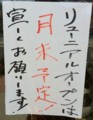 リューニアルオープンは
月末予定!
宜しくお願いします!